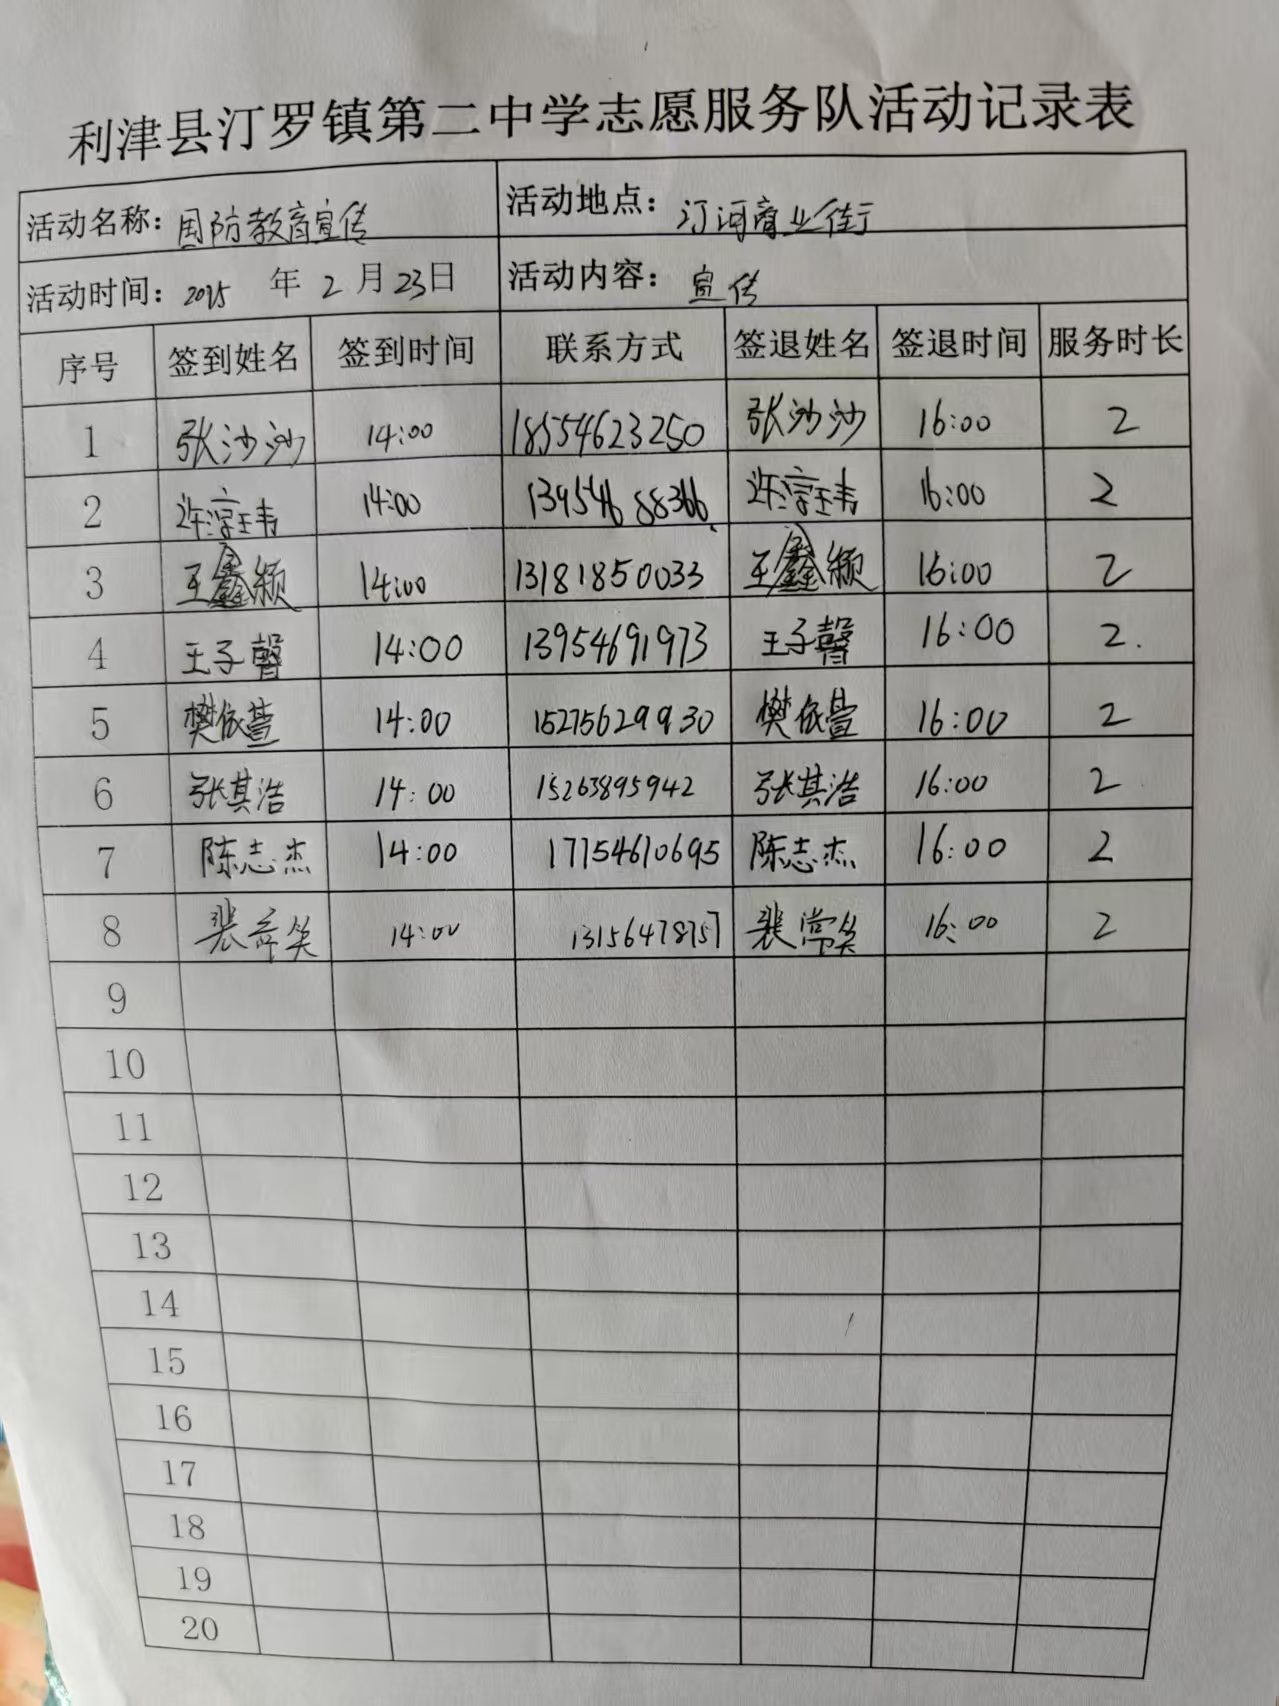 利津县汀罗镇第二中学志愿服务队活动记录表
活动名称：国防教育宣传 活动地点：汀河商业街
活动时间：2025 年 2 月 23日 活动内容：宣传
序号 签到姓名 签到时间 联系方式 签退姓名 签退时间 服务时长
1 张沙沙 14:00 18554623250 张沙沙 16:00 2
2 许淳玮 14:00 13954688366 许淳玮 16:00 2
3 王鑫颖 14:00 13181850033 王鑫颖 16:00 2
4 王子馨 14:00 13954691973 王子馨 16:00 2.
5 樊依萱 14:00 15275629930 樊依萱 16:00 2
6 张其浩 14:00 15263895942 张其浩 16:00 2
7 陈志杰 14:00 17754610695 陈志杰 16:00 2
8 14:00 13156478757 16:00 2
9
10
11
12
13
14
15
16
17
18
19
20